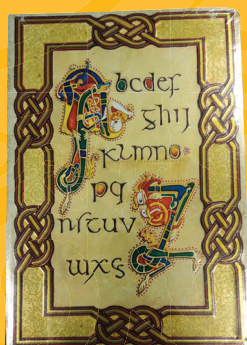 Abcdef
ghij
klmno
pq
rstuv
wxyZ